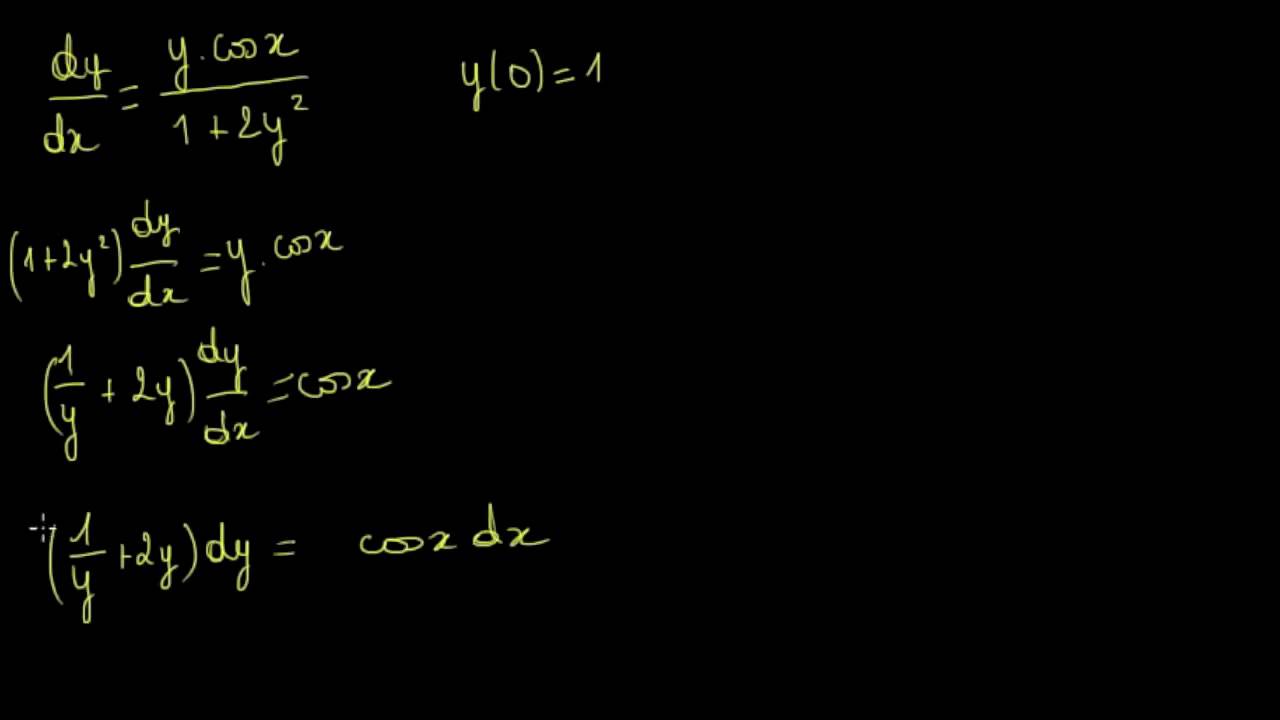 dy/dx = y.cosx/(1+2y²) y(0)=1
(1+2y²) dy/dx = y.cosx
(1/y + 2y) dy/dx = cosx
(1/y + 2y) dy = cosx dx